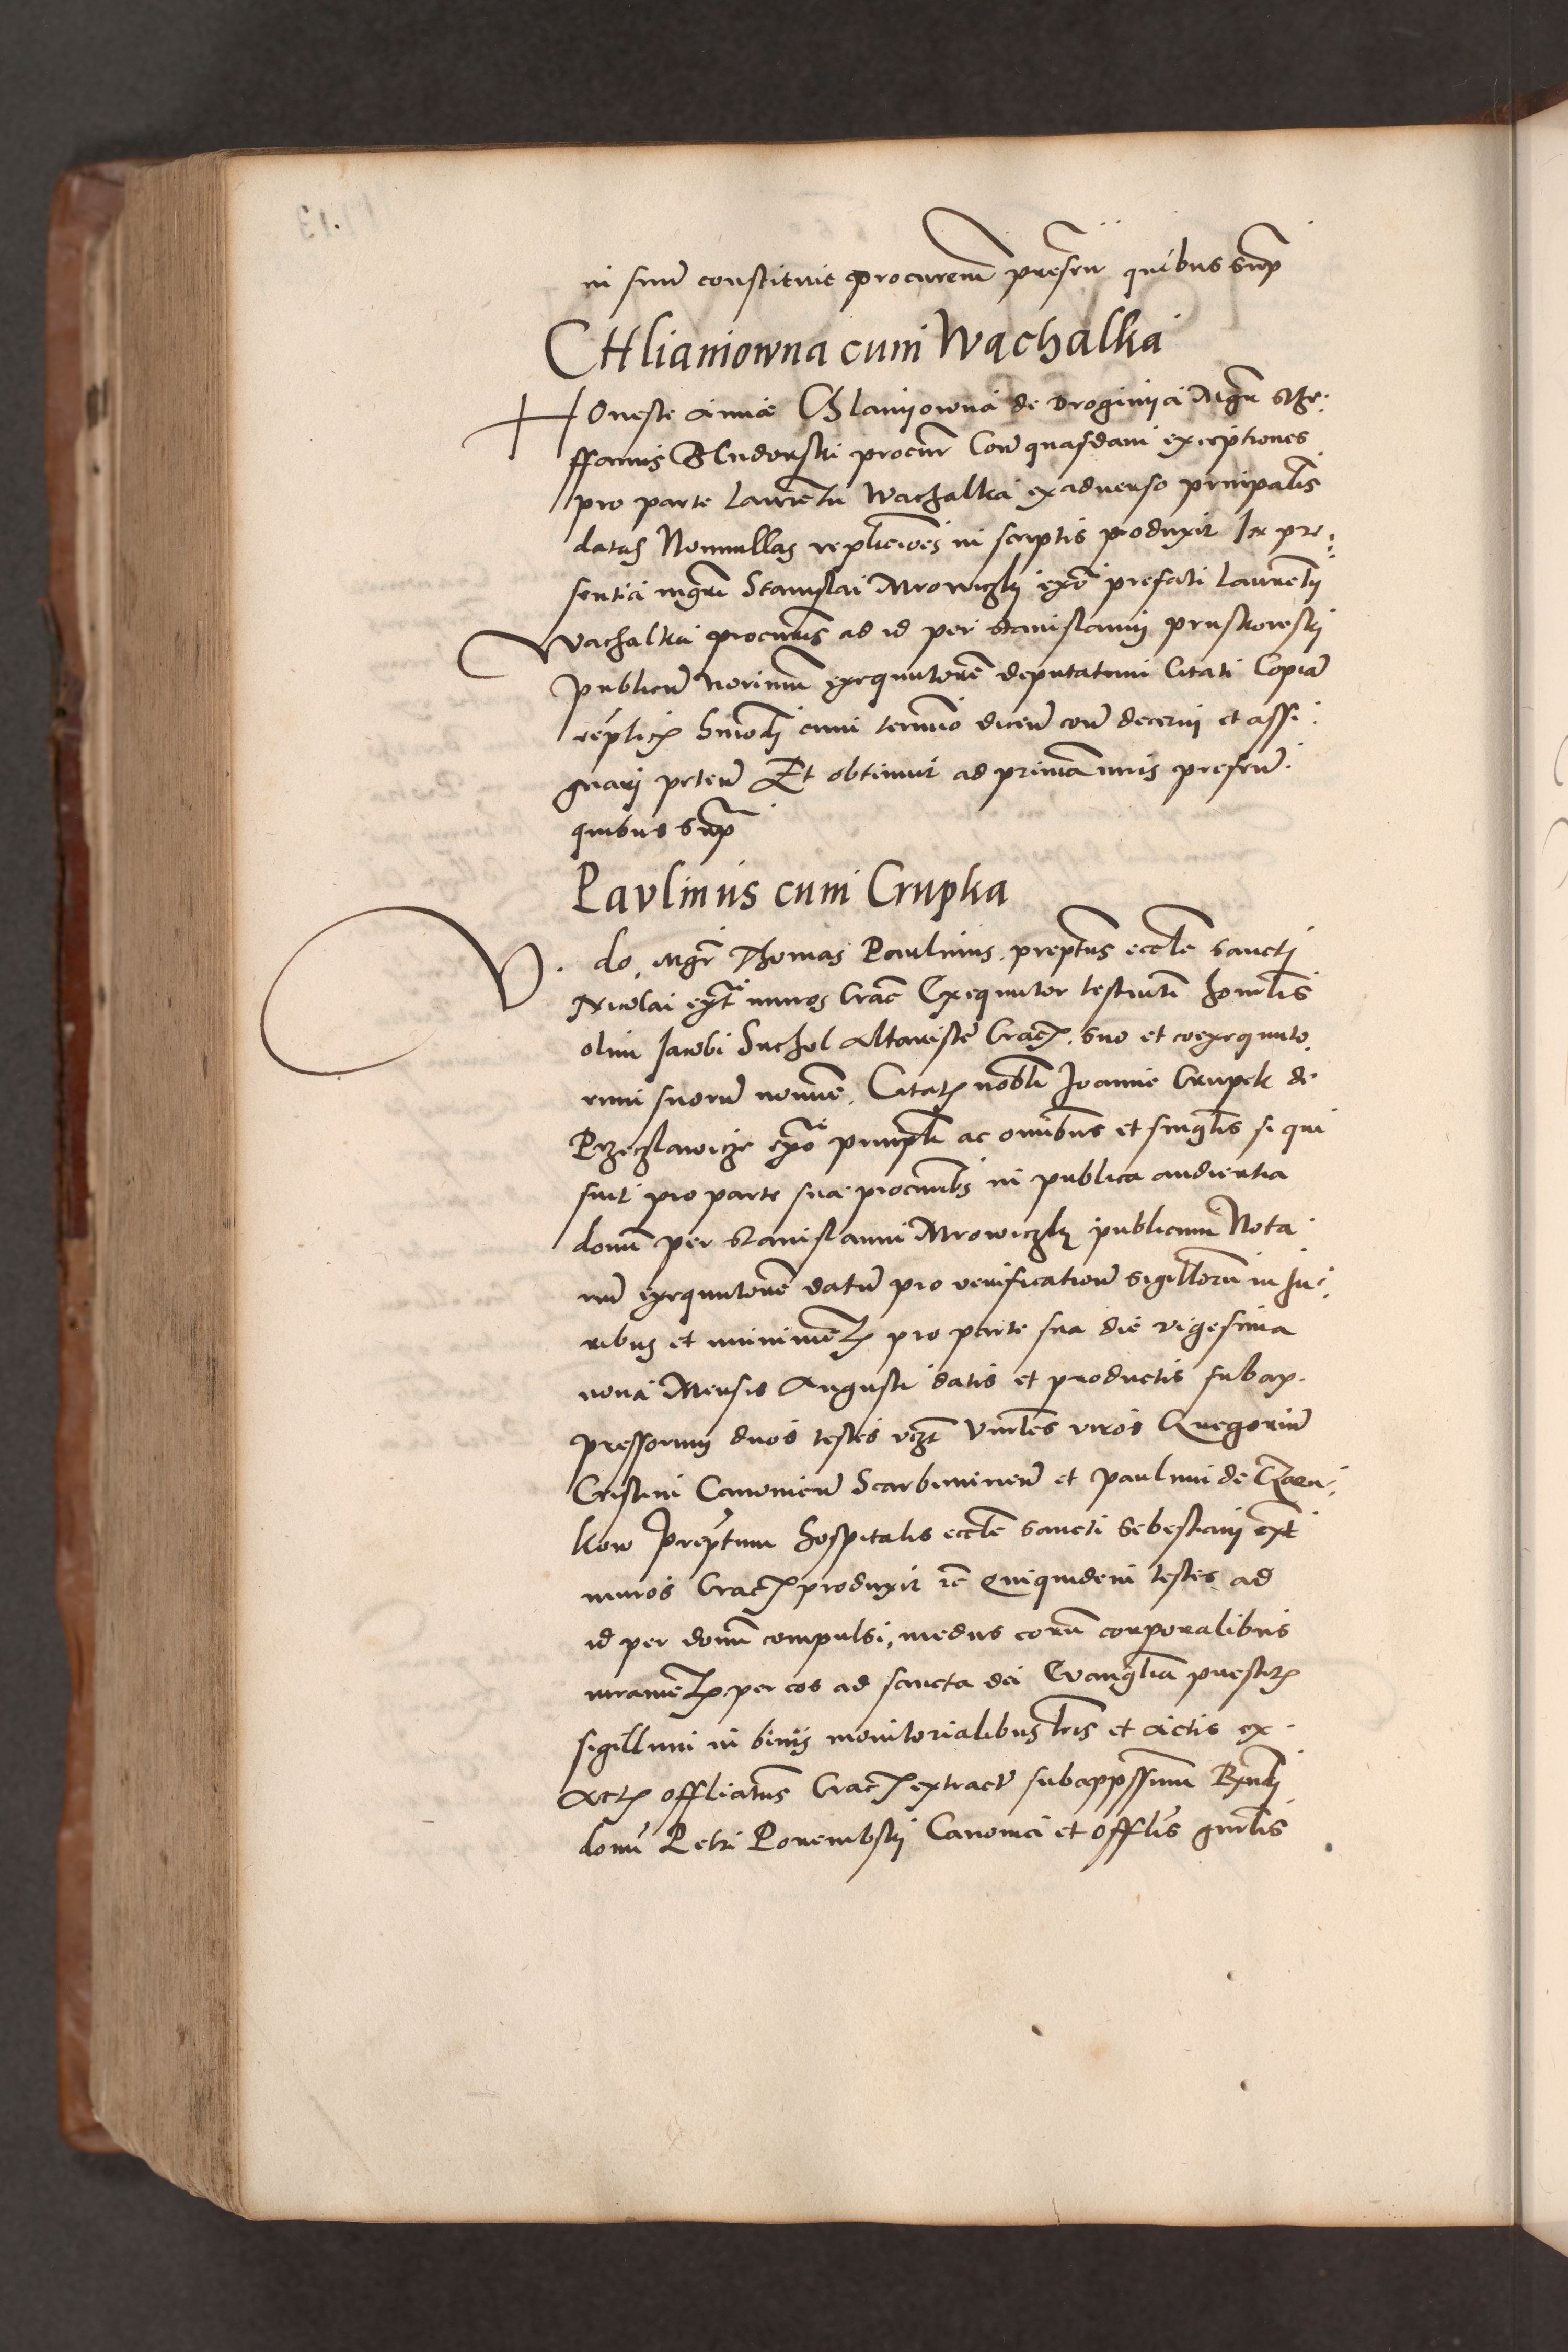 in suum constituit procurem presen quibus supra
CHlaniowna cum Wachalka
HOneste Annae Chlaniiowna de Droginija Mgr Ste
ffanus Bludowski procur Con quasdam exceptiones
pro parte Laurentii Wachalka exadverso principalis
datas Nonnullas replicaoes in scriptis produxit In pre
sentia mgri Stanislai Mrowiczky exo prefati Laurentii
Wachalka procuris ad id per Stanislaum Pruskowsky
publicum norium exequutorem deputatum Citati Copiam
replicar hmodi cum termino dicen con decerni et assi
gnari peten Et obtinuit ad primam iuris presen
quibus supra
Pavlinus cum Crupka
V. do. Mgr Thomas Paulinus preptus eccle sancti
Nicolai ext muros Crac Exequutor testamti honlis
olim Jacobi Suchol Altariste Crac. suo et coexequuto
rum suorum nomine. Citatis nobli Joanne Crupek de
Przeczlawicze exo principli ac omnibus et singlis si qui
sunt pro parte sua procuribs in publica audientia
domi per Stanislaum Mrowiczky publicum Nota
rium exequutorem datum pro verificatione sigillorum in Ju
ribus et munimentis pro parte sua die vigesima
nona Mensis Augusti datis et productis subap
pressorum duos testes vczt Vnrles viros Gregorium
Cristini Canonicum Scarbimirien et Paulum de Czarn
kow prepтum hospitalis eccle sancti Sebestiani ext
muros Crac produxit in Quiquidem testes ad
id per domi compulsi, medus eorum corporalibus
iuramentis per eos ad sancta dei Evanglia prestitis
sigillum in binis monitorialibus lris et Actis ex
Actis offliatus Crac extract subappssum Rxndi
domi Petri Porembsky Canonici et offlis gnrlis